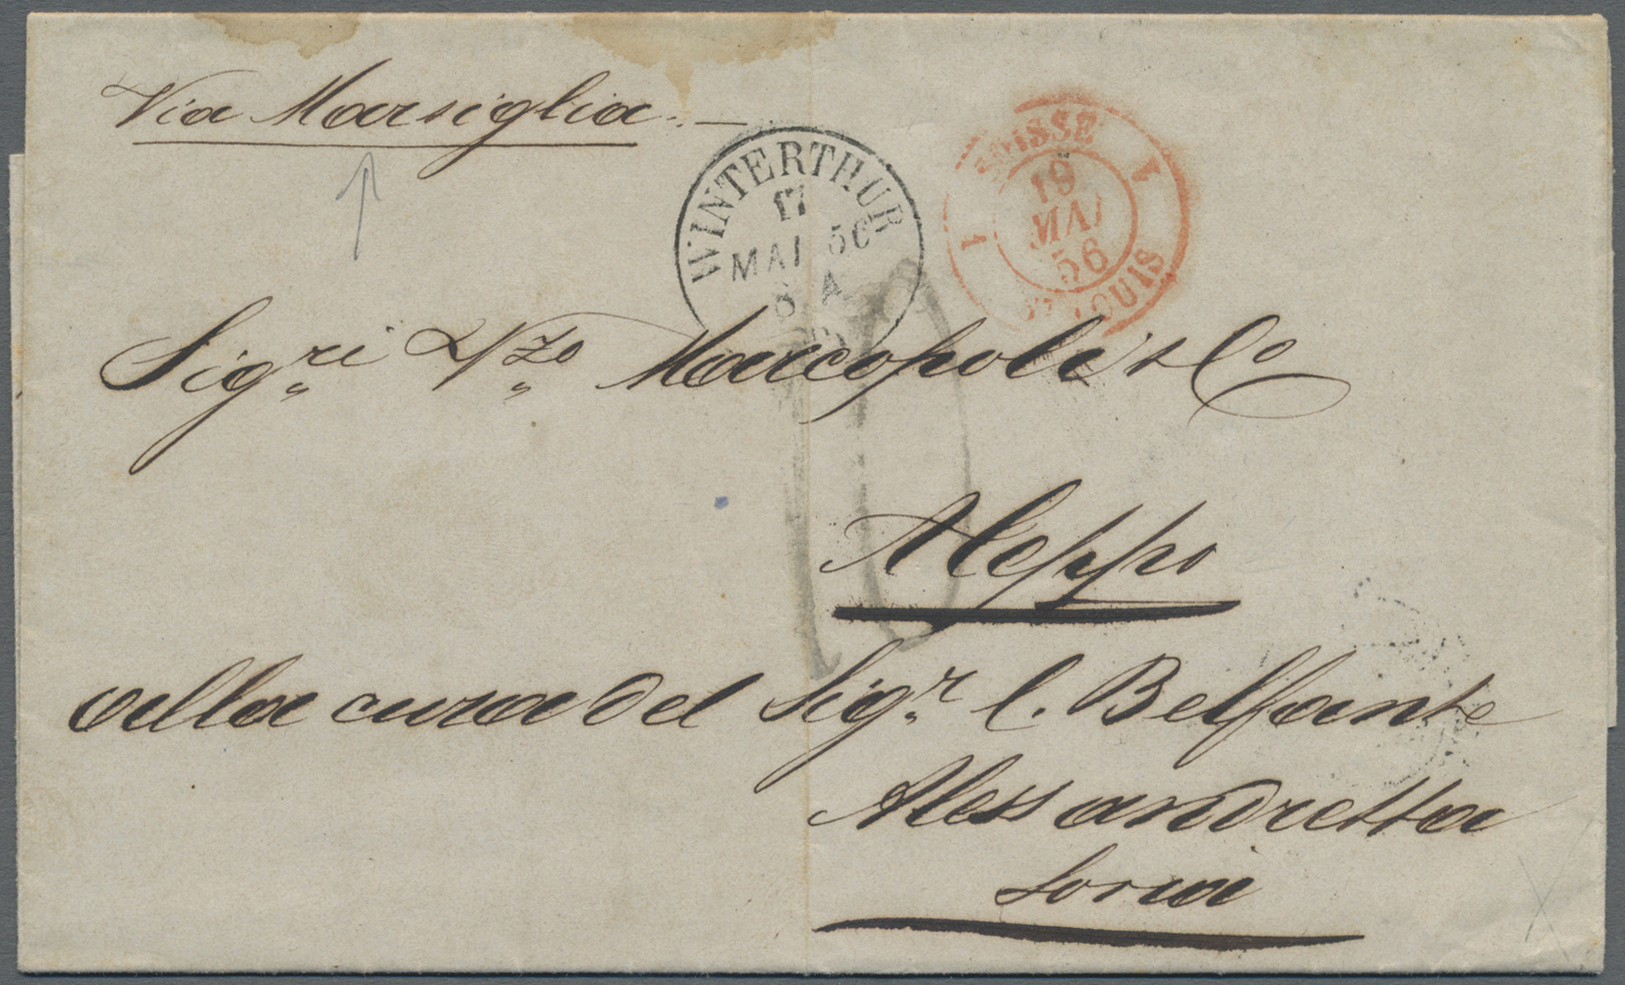 Via Marsiglia
WINTERTHUR
17
MAI 56
8 A
SUISSE
1 1
19
MAI
56
ST LOUIS
10
Sigri Vzo Marcopoli & Co
Aleppo
alla cura del Sigr C. Belfante
Alessandretta
Soria